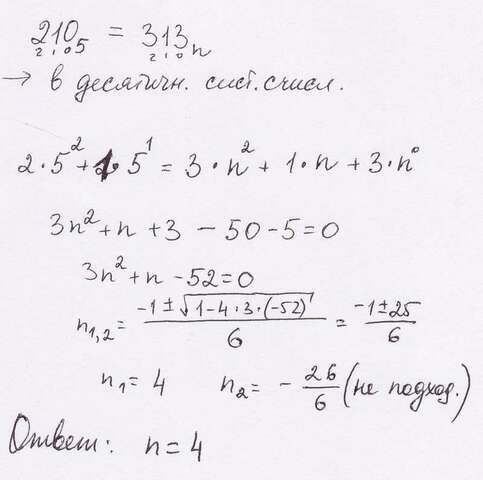 210₅ = 313ₙ
2 1 0 2 1 0
→ в десятичн. сист. счисл.
2·5² + 1·5¹ = 3·n² + 1·n + 3·n⁰
3n² + n + 3 - 50 - 5 = 0
3n² + n - 52 = 0
n₁,₂ = (-1 ± √(1-4·3·(-52)))/6 = (-1 ± 25)/6
n₁ = 4 n₂ = - 26/6 (не подход.)
Ответ: n = 4